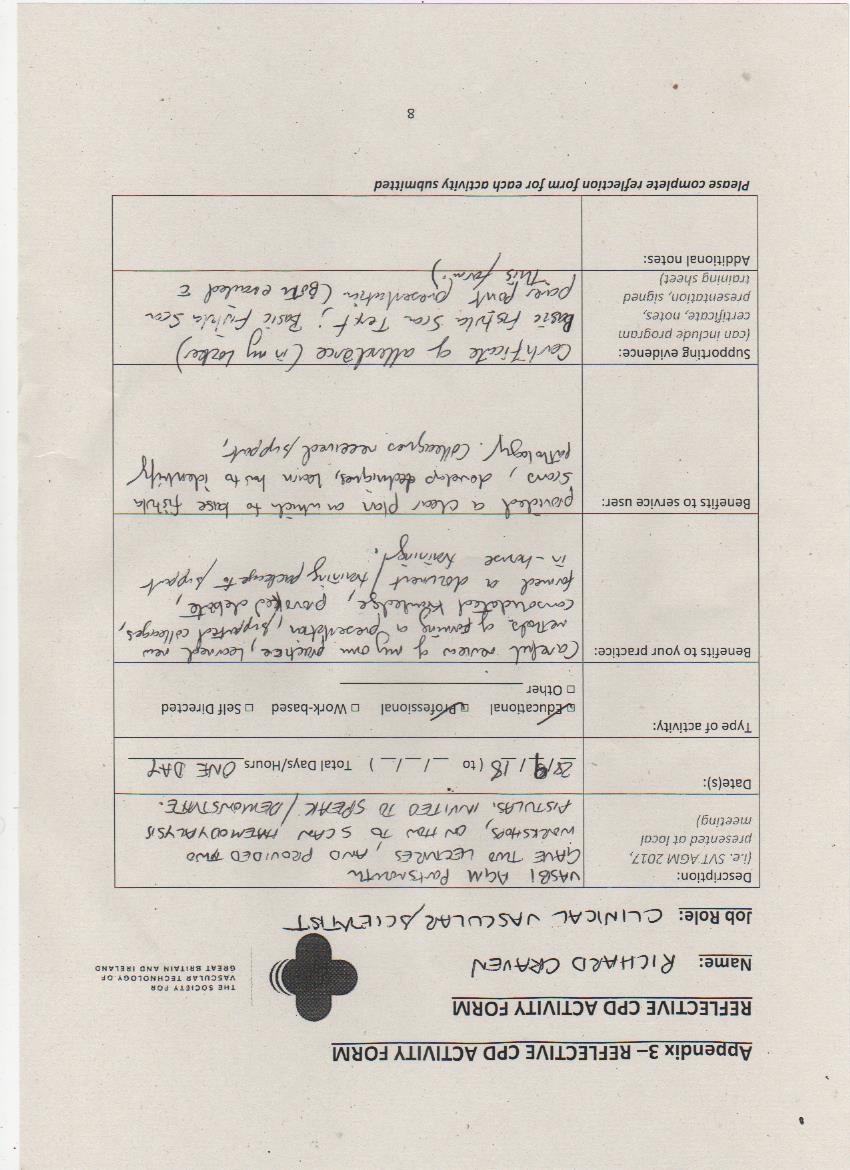 Appendix 3– REFLECTIVE CPD ACTIVITY FORM
REFLECTIVE CPD ACTIVITY FORM
THE SOCIETY FOR
VASCULAR TECHNOLOGY OF
GREAT BRITAIN AND IRELAND
Name: RICHARD CRAVEN
Job Role: CLINICAL VASCULAR SCIENTIST
Description:
(i.e. SVT AGM 2017,
presented at local
meeting)
VASBI AGM Portsmouth
GAVE TWO LECTURES, AND PROVIDED TWO
WORKSHOPS, ON HOW TO SCAN HAEMODYALYSIS
FISTULAS. INVITED TO SPEAK / DEMONSTRATE.
Date(s):
28/9/18 (to __/__/__) Total Days/Hours ONE DAY
Type of activity:
☑ Educational ☑ Professional □ Work-based □ Self Directed
□ Other
Benefits to your practice:
Careful review of my own practice, learned new
methods of forming a presentation, supported colleages,
consolidated knowledge, provoked debate,
formed a document / training package to support
in-house training.
Benefits to service user:
provided a clear plan on which to base fistula
scans, develop techniques, learn how to identify
pathology. Colleagues received support,
Supporting evidence:
(can include program
certificate, notes,
presentation, signed
training sheet)
Certificate of attendance (in my locker)
Basic Fistula Scan Text; Basic Fistula Scan
power point presentation (Both emailed c̄
this form.)
Additional notes:
Please complete reflection form for each activity submitted
8